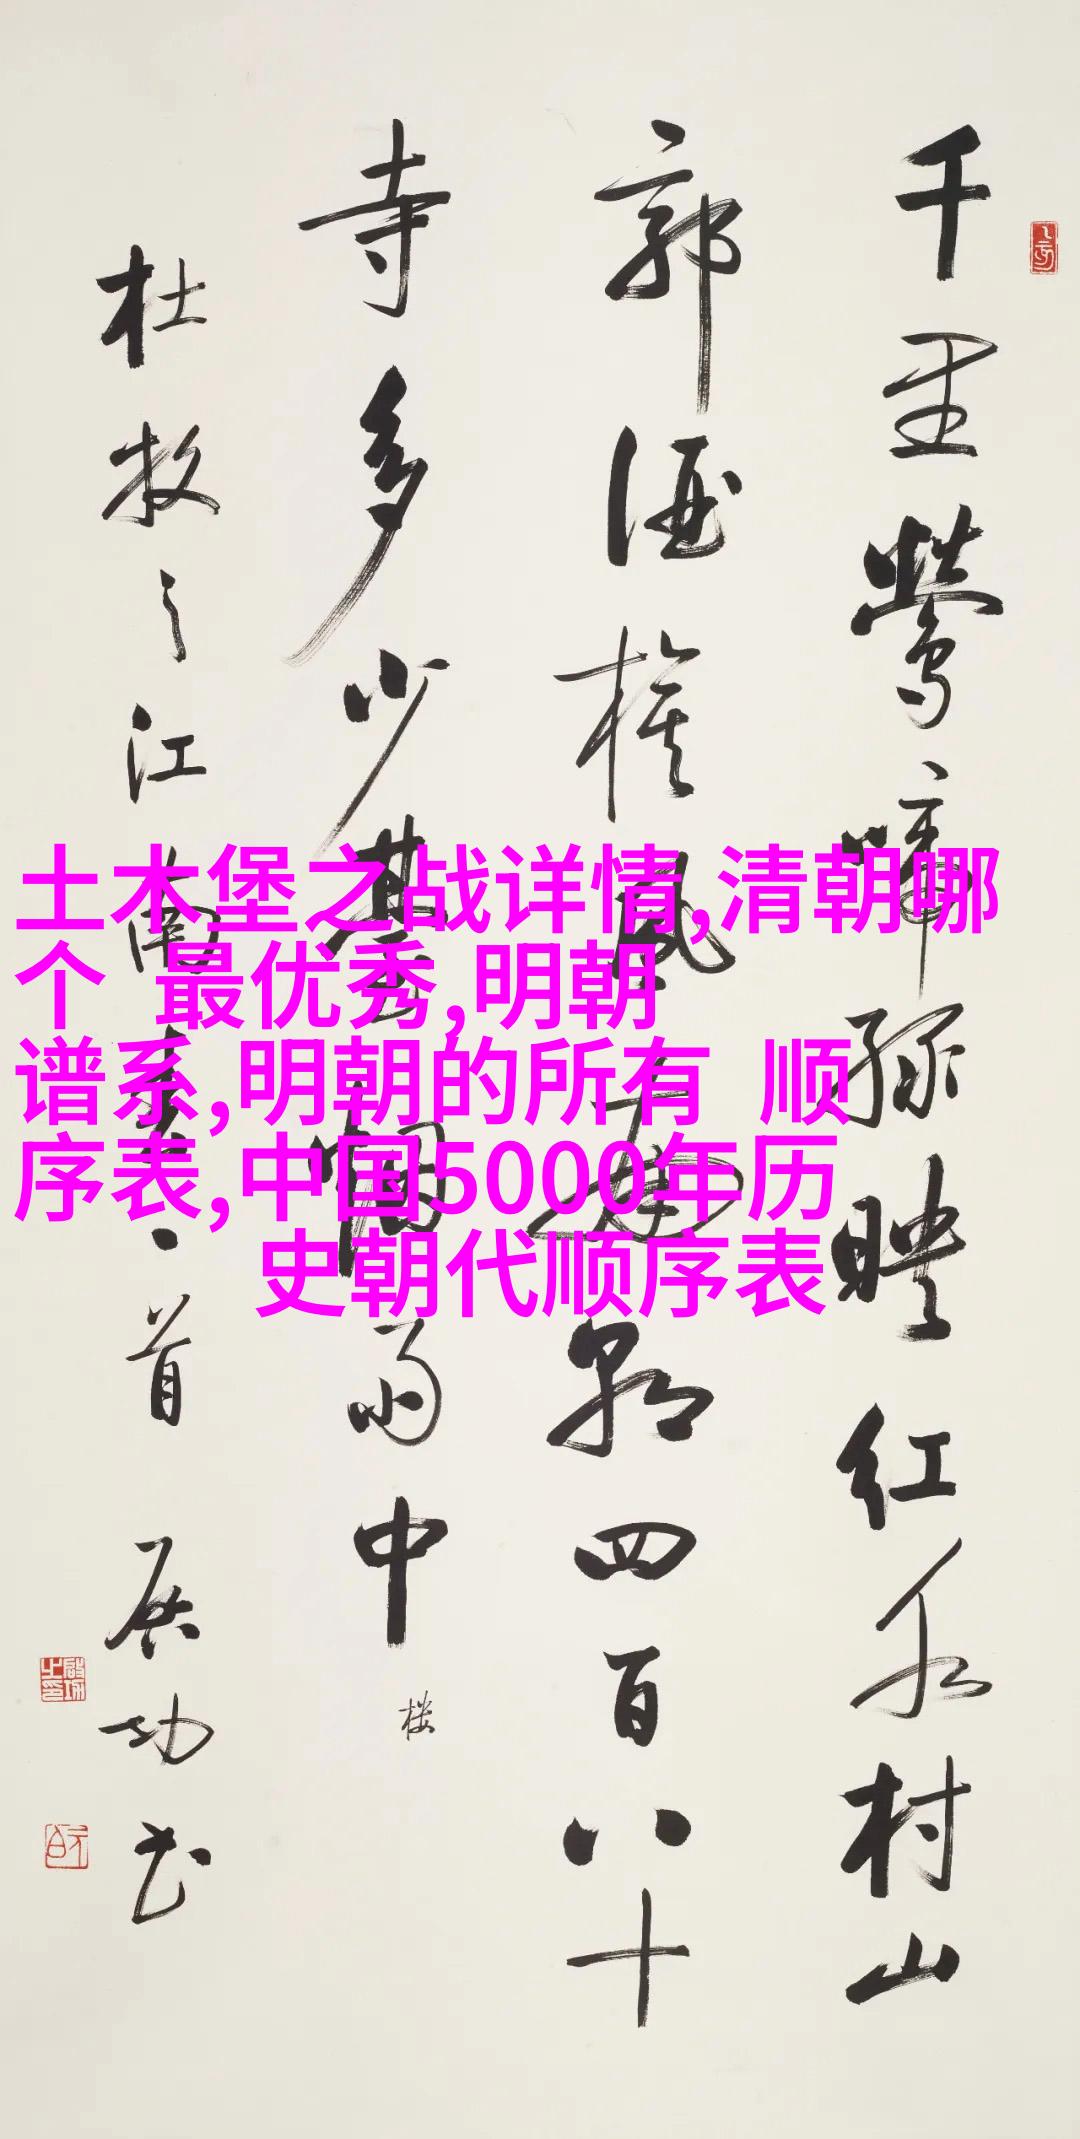 千里鶯啼綠映紅水村山
郭酒旗風南朝四百八十
寺多少臺烟雨中
楼
杜牧之江南春一首 启功书
土木堡之战详情,清朝哪
个 最优秀,明朝
谱系,明朝的所有 顺
序表,中国5000年历
史朝代顺序表